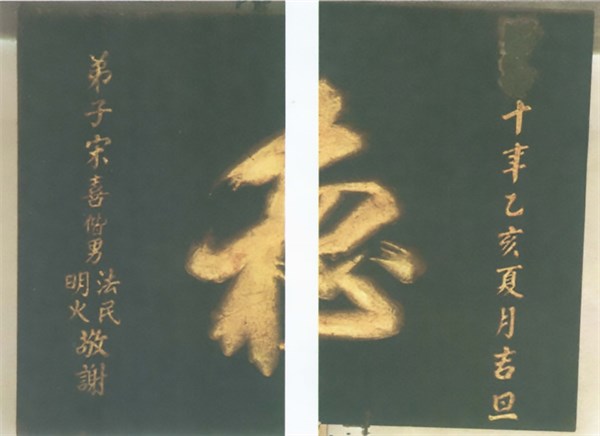 十年乙亥夏月吉旦
弟子宋喜偕男
法民
明火
敬謝